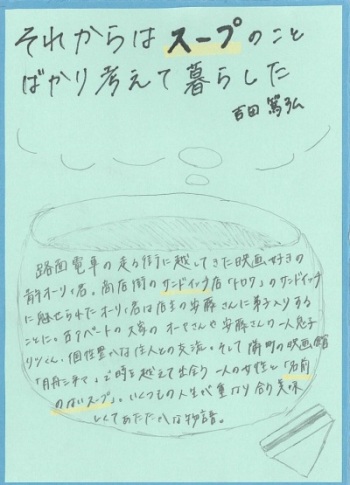 それからはスープのこと
ばかり考えて暮らした
吉田 篤弘
路面電車の走る街に越してきた映画好きの
青年オーリィ君。商店街のサンドイッチ店「トロワ」のサンドイッチ
に魅せられたオーリィ君は店主の安藤さんに弟子入りする
ことに。アパートの大家のオーヤさんや安藤さんの一人息子
リツくん、個性豊かな住人との交流。そして隣町の映画館
「月舟シネマ」で時を越えて出会う一人の女性と「名前
のないスープ」。いくつもの人生が重なり合う美味
しくてあたたかな物語。